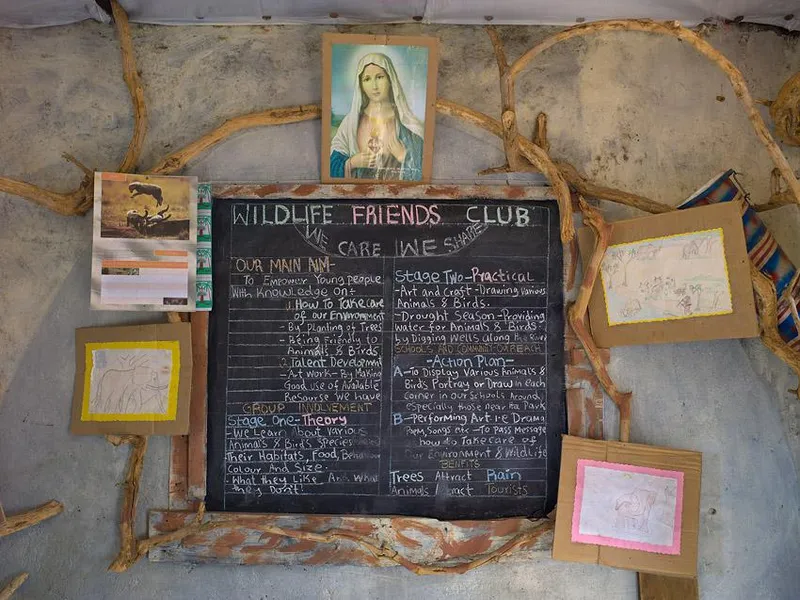 WILDLIFE FRIENDS CLUB
WE CARE WE SHARE
OUR MAIN AIM-
To Empower Young people
With Knowledge On:
1. How To Take care
of our Environment
- By Planting of Trees
- Being Friendly to
Animals & Birds
2. Talent Development
- Art work - By Making
Good use of Available
Resourse We have
GROUP INVOLVEMENT
Stage One - Theory
- We Learn About Various
Animals & Birds Species
Their Habitats, Food, Behaviour
Colour And Size.
- What they Like And What
they Don't!
Stage Two - Practical
- Art and Craft - Drawing Various
Animals & Birds.
- Drought Season - Providing
water for Animals & Birds
by Digging Wells along the River
SCHOOLS AND COMMUNITY OUTREACH
- Action Plan -
A - To Display Various Animals &
Birds Portray or Draw in each
corner in our Schools Around
especially those near the Park
B - Performing Art i.e Drama
Poem, Songs etc - To Pass Message
how to Take care of
Our Environment & Wildlife
BENEFITS
Trees Attract Rain
Animals Attract Tourists